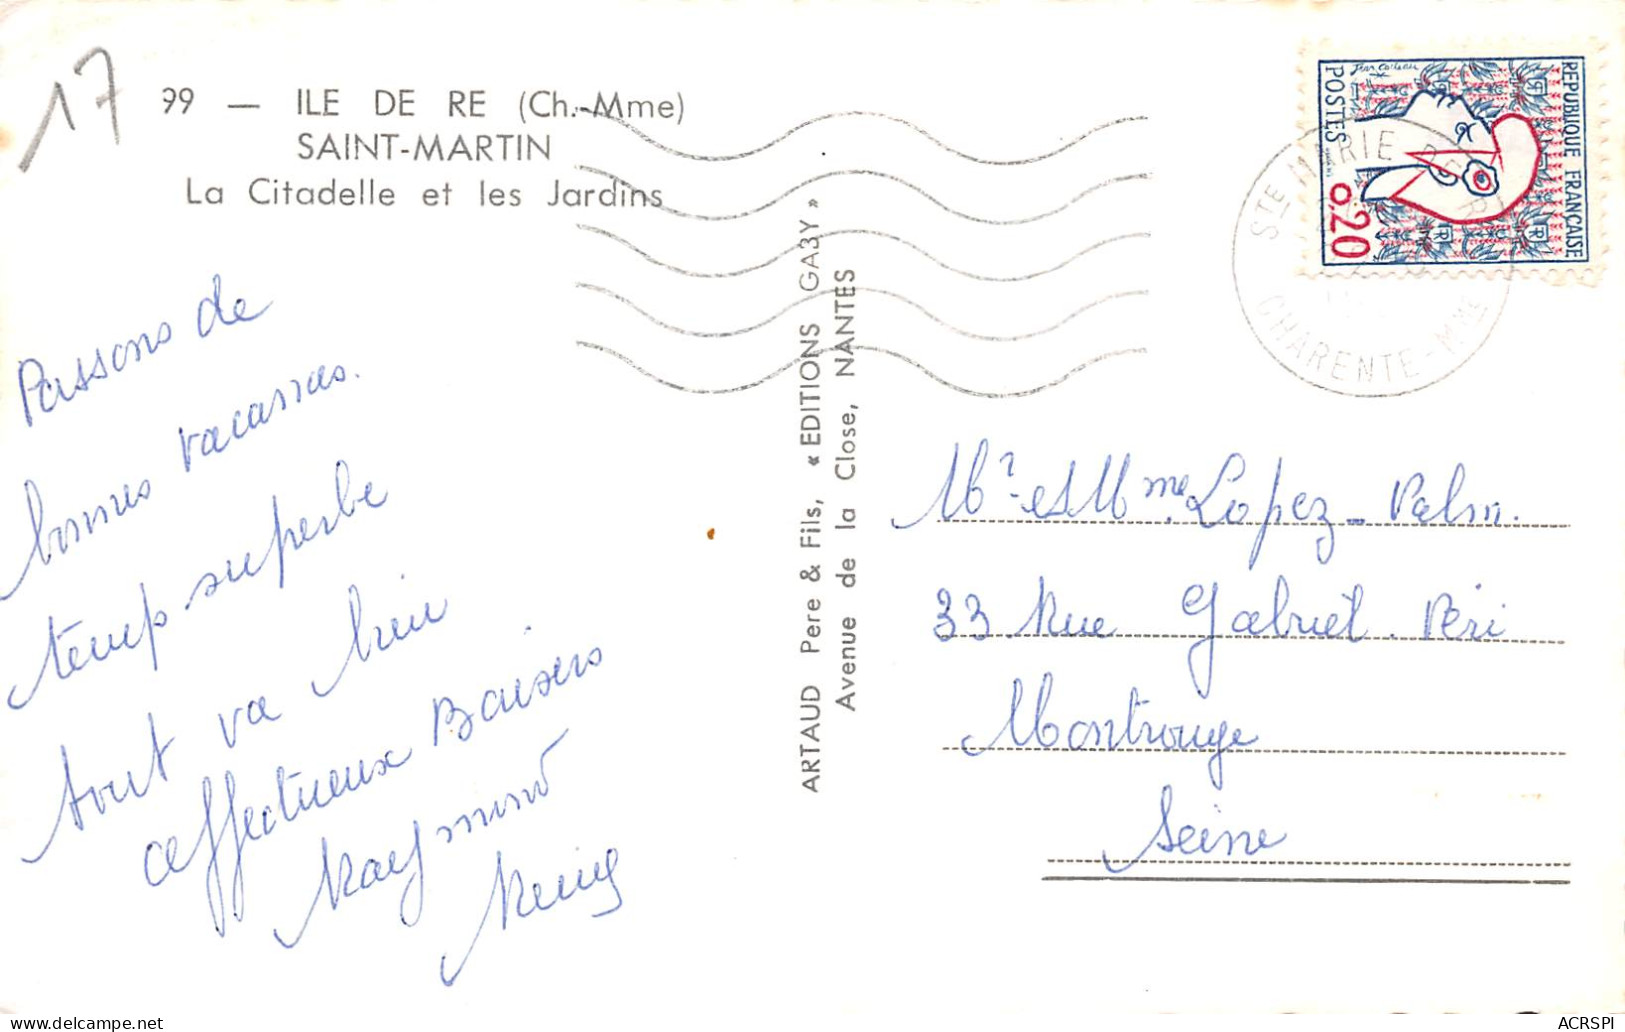 17
99 — ILE DE RE (Ch.-Mme)
SAINT-MARTIN
La Citadelle et les Jardins
Passons de
bonnes vacanses.
temp superbe
tout va bien
affectueux Baisers
Raymond
ARTAUD Pere & Fils, « EDITIONS GABY »
Avenue de la Close, NANTES
REPUBLIQUE FRANÇAISE
POSTES
0,20
Jean Cocteau
STE MARIE DE RE
CHARENTE-MME
Mr et Mme Lopez-Palm.
33 Rue Gabriel Péri
Montrouge
Seine
ACRSPI